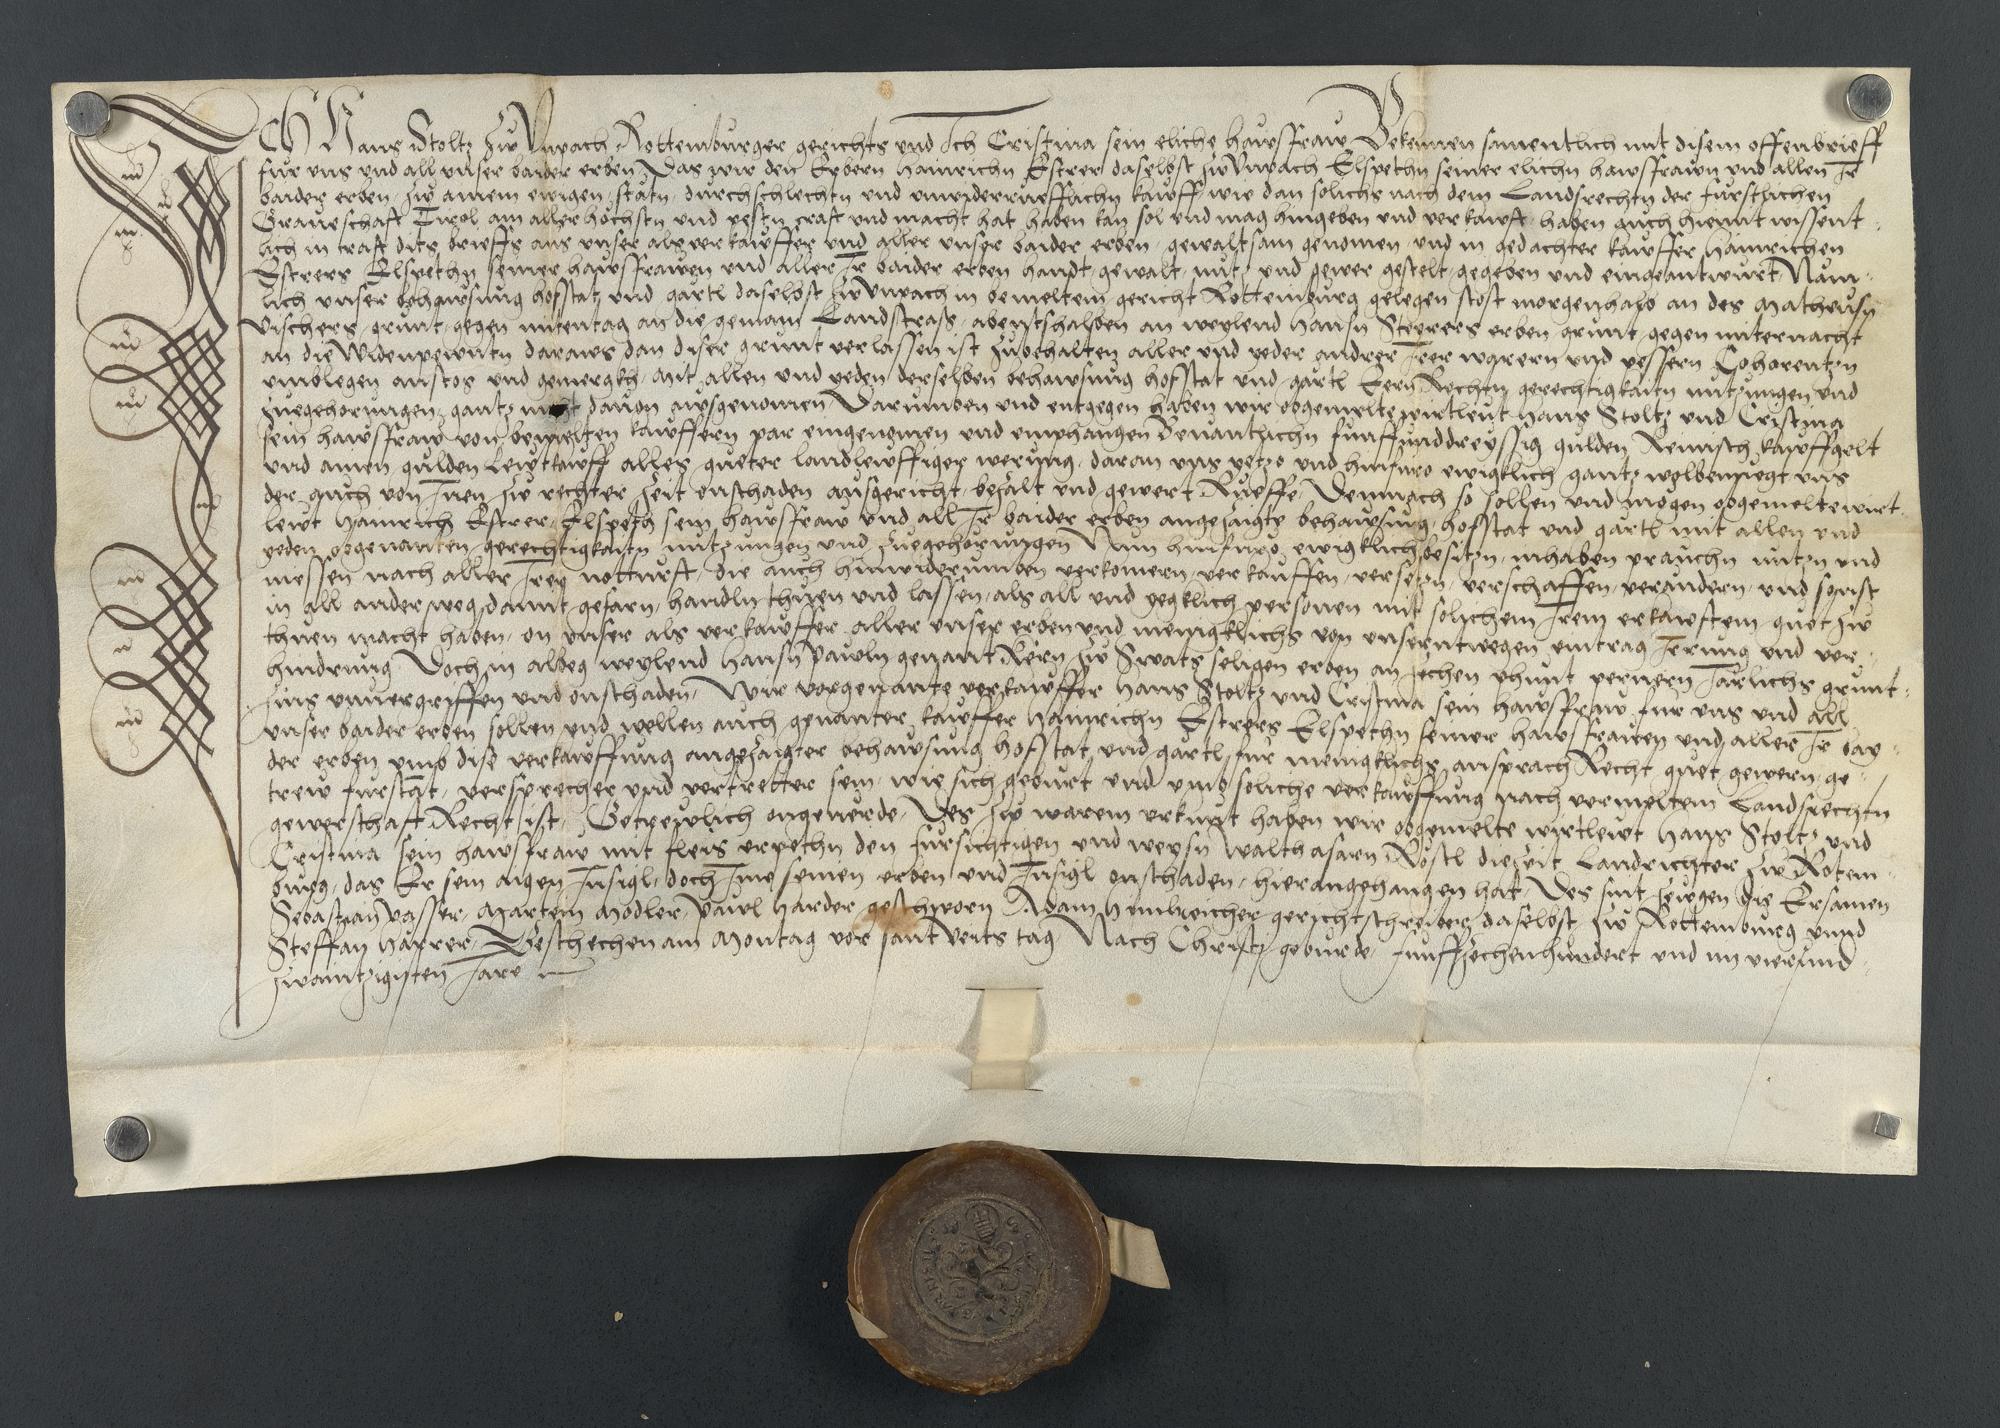 Ich Hans Stoltz zw Unpach Rottemburger gerichts und Ich Cristina sein eliche hawsfraw Bekennen samentlich mit disem offen brieff
fur uns und all unser baider erben Das wir den Erbern Hainrichn Estrer daselbst zw Unpach Elspethn seiner elichn hawsfrawn und allen Ir
baider erben zw ainem ewigen statn durchschlechtn und unwiderrueflichn kauff wie dan solichs nach dem Landsrechtn der furstlichen
Graveschaft Tirol am aller hochstn und vestn craft und macht hat haben kan sol und mag hingeben und verkauft haben auch hiemit wissent-
lich in craft dits brieffs aus unser als verkawffer und aller unser baider erben gewaltsam genomen und in gedachter kawffer Hainrichen
Estrers Elspethn seiner hawsfrawen und aller Ir baider erben handt gewalt nutz und gewer gestelt gegeben und eingeantwurt Nam-
lich unser behawsung hofstat und gartl daselbst zw Unpach in bemeltem gericht Rottemburg gelegen stost morgenhalb an des Matheusn
Vischers grunt gegen mitentag an die gemain Landstrass abentshalben an weylend Hansn Steerers erben grunt gegen miternacht
an die Widenpewntn daraws dan diser grunt verlassen ist zubehalten aller und yeder andrer Irer warern und pessern Coherentzn
umblegen anstos und gemergkh mit allen und yeden derselben behawsung hofstat und gartl Eern Rechtn gerechtigkaitn nutzungen und
zuegehorungen gantz nicht davon awsgenomen Darumben und entgegen haben wir obgemelte wirtleut Hans Stoltz und Cristina
sein hawsfraw von bemelten kawffern par eingenomen und emphangen Benantlichn funffunddreyssig gulden Reinisch kauffgelt
und ainen gulden Leytkawff alles gueter landlewffiger werung daran uns yetzo und hinfuro ewigklich gantz wolbenuegt uns
der auch von Inen zw rechter zeit onschaden ausgericht bezalt und gewert Rueffe Demnach so sollen und mogen obgemelte wirt-
lewt Hainrich Estrer Elspeth sein hawsfraw und all Ir baider erben angezaigte behawsung hofstat und gartl mit allen und
yeden obgenanten gerechtigkaitn nutzungen und zuegehorungen Nun hinfuro ewigklich besitzn inhaben prauchn nutzn und
niessen nach aller Irer notturft die auch hinwiderumben verkomern verkauffen versetzn verschaffen verandern und sonst
in all ander weg damit gefarn handln thuen und lassen als all und yegklich personen mit solichem Irem erkawftem guet zw
thuen macht haben on unser als verkawffer aller unser erben und menigklichs von unserntwegen eintrag Irrung und ver-
hindrung Doch in albeg weylend Hansn Pawln genant Kern zw Swats seligen erben an zechen phunt pernern Jarlichs grunt-
zins unvergriffen und onschaden Wir vorgenante verkawffer Hans Stoltz und Cristina sein hawsfraw fur uns und all
unser baider erben sollen und wellen auch genanter kawffer Hainrichn Estrers Elspethn seiner hawsfrauen und aller Ir bay-
der erben umb dise verkawffung angezaigter behawsung hofstat und gartl fur menigklichs ansprach Recht guet gewern ge-
trew furstat versprecher und vertretter sein wie sich geburt und umb soliche verkawffung nach vermeltem Landsrechtn
gewerschaft Recht ist Getrewlich ongeverde Des zw warem urkunt haben wir obgemelte wirtlewt Hans Stoltz und
Cristina sein hawsfraw mit fleis erpethn den fursichtigen und weysn Walthasarn Rostl die zeit Landrichter zw Rotem-
burg das Er sein aigen Insigl doch Ime seinen erben und Insigl onschaden hierangehangen hat Des sint zeugen die Ersamen
Sebastian Vasser Martein Modler Pawl Harder geschworn Adam gerichtschreiber daselbst zw Rottemburg unnd
Steffan Harrer Geschechen am Montag vor sant Veits tag Nach Christi geburde funffzechenhundert und im vierund-
zwantzigisten Jare